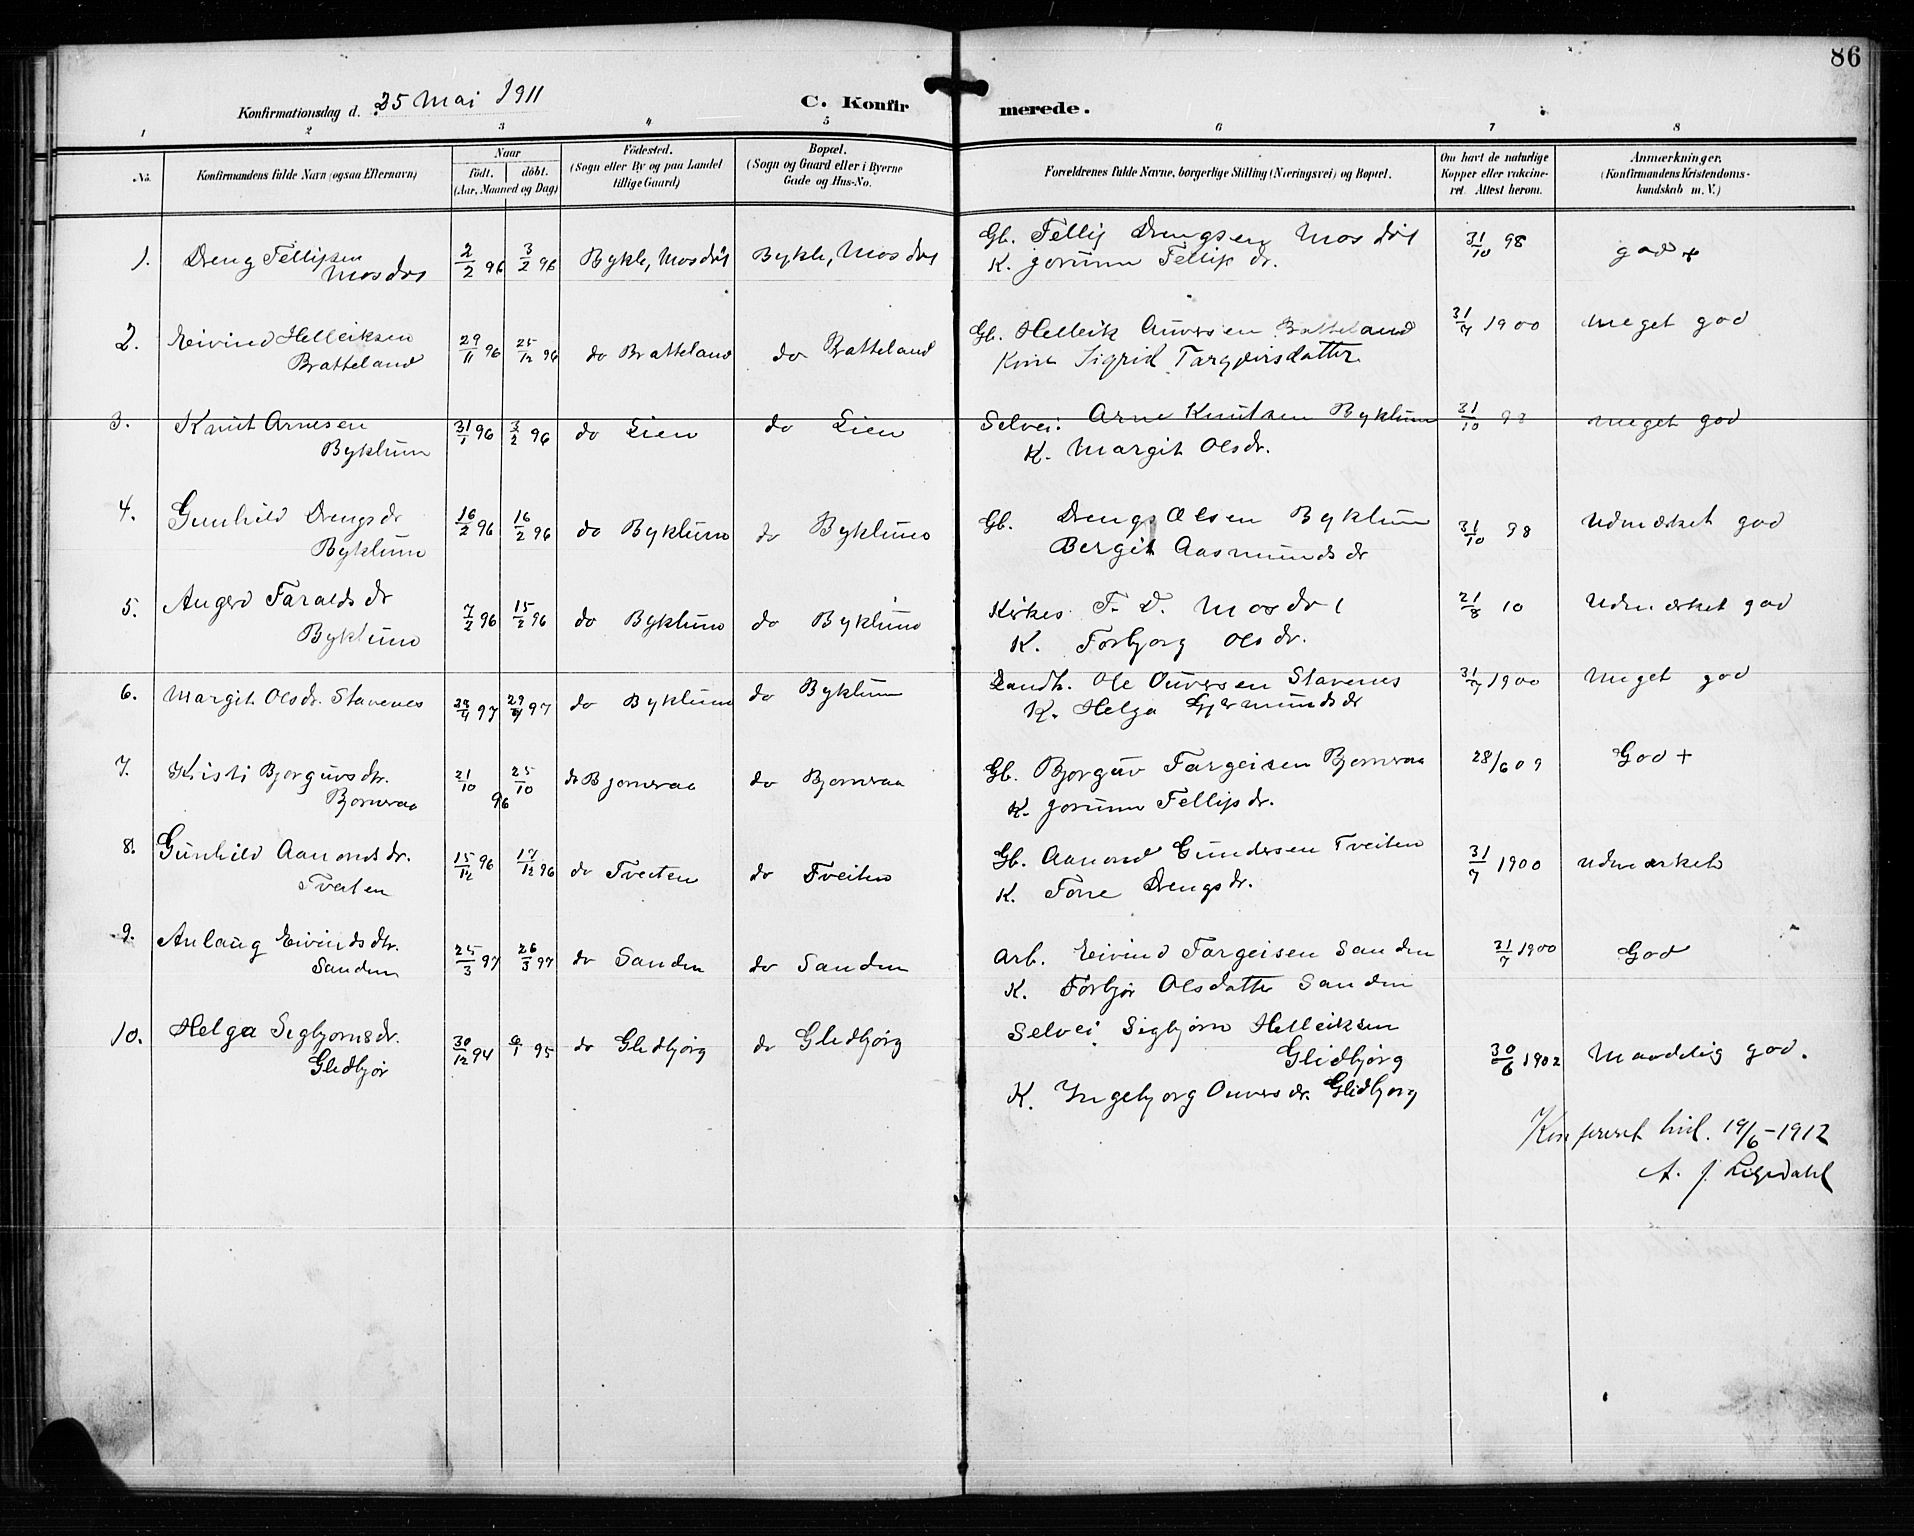 86
Konfirmationsdag d. 25 Mai 1911
C. Konfirmerede.
1 2 3 4 5 6 7 8
No. Konfirmandens fulde Navn (ogsaa Efternavn) Naar født. døbt. (Aar, Maaned og Dag) Fødested. (Sogn eller By og paa Landet tillige Gaard) Bopæl. (Sogn og Gaard eller i Byerne Gade og Hus-No. Forældrenes fulde Navne, borgerlige Stilling (Næringsvei) og Bopæl. Om havt de naturlige Kopper eller vakcineret. Attest herom. Anmærkninger. (Konfirmandens Kristendomskundskab m. V.)
1. Dreng Fellipsen 2/2 96 3/2 96 Bykle, Mosdøl Bykle, Mosdøl Gb. Fellip Drengsen Mosdøl 31/10 98 god +
Mosdøl K. Jorunn Fellipsdr.
2. Eivind Helleiksen 29/11 96 25/12 96 do Bratteland do Bratteland Gb. Helleik Auversen Bratteland 31/7 1900 Meget god
Bratteland Kone Sigrid Targjeirsdatter
3. Knut Arnesen 31/1 96 3/2 96 do Lien do Lien Selvei. Arne Knutsen Byklum 31/10 98 meget god
Byklum K. Margit Olsdr.
4. Gunhild Drengsdr 16/2 96 16/2 96 do Byklum do Byklum Gb. Dreng Olsen Byklum 31/10 98 Udmærket god
Byklum Bergit Aasmundsdr
5. Angerd Taraldsdr 7/2 96 15/2 96 do Byklum do Byklum Kirkes. T. D. Mosdøl 21/8 10 Udmærket god
Byklum K. Torbjorg Olsdr.
6. Margit Olsdr. Stavenes /4 97 29/ 97 do Byklum do Byklum Landh. Ole Ouversen Stavenes 31/7 1900 Meget god
K. Helga Gjermundsdr
7. Kristi Bjorguvsdtr. 21/10 25/10 96 do Bjornraa do Bjornraa Gb. Bjorguv Targeisen Bjornraa 28/6 09 God +
Bjornraa K. Jorunn Fellipsdr.
8. Gunhild Aanondsdr. 15/12 96 17/12 96 do Tveiten do Tveiten Gb. Aanond Gundersen Tveiten 31/7 1900 udmærket
Tveiten K. Tone Drengsdr.
9. Anlaug Eivindsdtr. 25/3 97 26/3 97 do Sanden do Sanden Arb. Eivind Targeisen Sanden 31/7 1900 God
Sanden K. Torbjør Olsdatter Sanden
10. Helga Sigbjornsdr. 30/12 94 6/1 95 do Glidbjørg do Glidbjørg Selvei. Sigbjørn Helleiksen
Glidbjør Glidbjørg 30/6 1902 Maadelig god.
K. Ingebjorg Ouversdr. Glidbjorg
Konfereret hid. 19/6-1912
A. J. Ligdahl